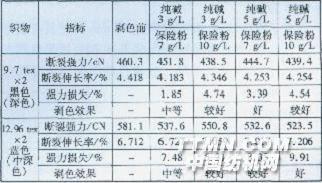 织物 指标 剥色前 纯碱 3 g/L 保险粉 7 g/L 纯碱 3 g/L 保险粉 10 g/L 纯碱 5 g/L 保险粉 7 g/L 纯碱 5 g/L 保险粉 10 g/L
9.7 tex ×2 黑色 (深色) 断裂强力/cN 460.3 451.8 438.5 444.7 439.4
断裂伸长率/% 4.418 4.183 4.346 4.253 4.254
强力损失/% - 1.85 4.74 3.39 4.54
剥色效果 - 中等 较好 较好 好
12.96 tex ×2 蓝色 (中深色) 断裂强力/CN 581.1 537.6 550.8 532.6 523.5
断裂伸长率/% 6.712 6.72 .206
强力损失/% - 7.48 9.91
剥色效果 - 中等 较好 较好 好
JTMN.COM
中国纺机网